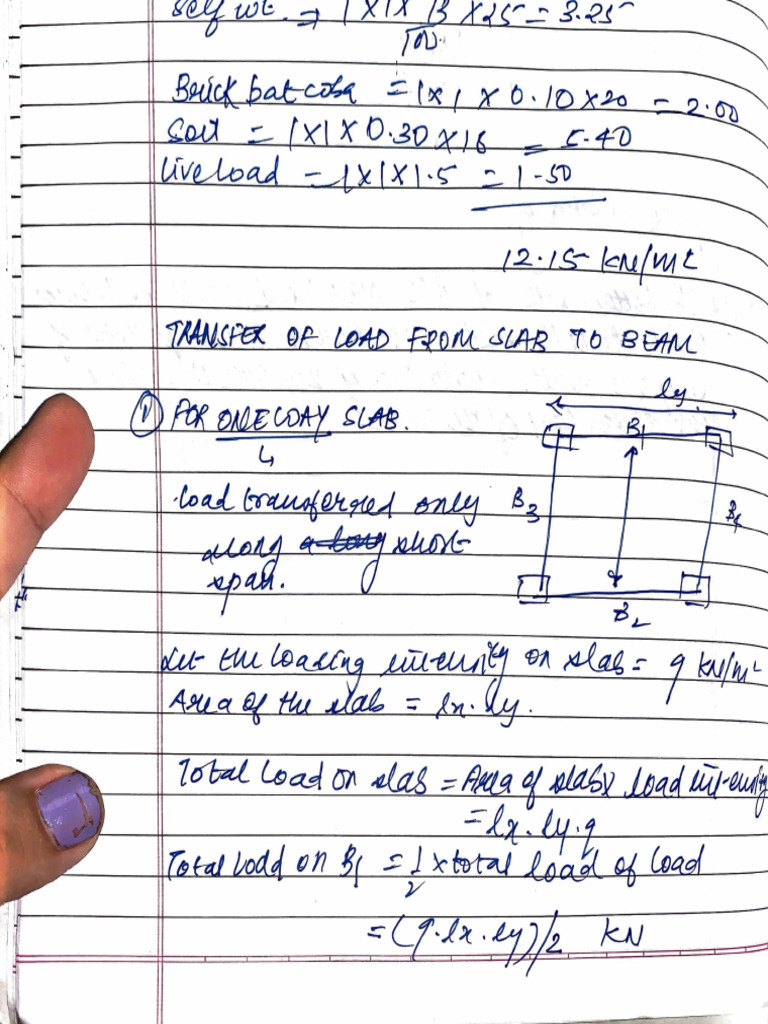 self wt. ⇒ 1×1× 13/100 ×25 = 3.25
Brick bat coba = 1×1×0.10×20 = 2.00
Soil = 1×1×0.30×18 = 5.40
Live load = 1×1×1.5 = 1.50
12.15 kN/m²
TRANSFER OF LOAD FROM SLAB TO BEAM
① FOR ONE WAY SLAB.
↳
load transferred only
along a long short
span.
ly
B1
B3
B4
B2
Let the loading intensity on slab = q kN/m²
Area of the slab = lx. ly.
Total load on slab = Area of slab × load intensity
= lx. ly. q
Total load on B1 = 1/2 × total load of load
= (q. lx. ly)/2 KN